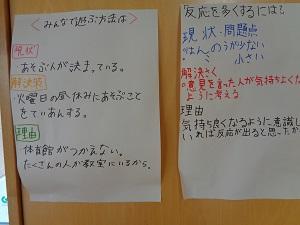 ＜みんなで遊ぶ方法は＞
現状
・あそぶ人が決まっている。
解決策
・火曜日の昼休みにあそぶこと
をていあんする。
理由
体育館がつかえない。
たくさんの人が教室にいるから。
反応を多くするには?
現状・問題点
・はんのうが少ない
小さい
解決さく
・意見を言った人が気持ちよくな
ように考える
理由
気持ち良くなるように意識し
いれば反応が出ると思ったか